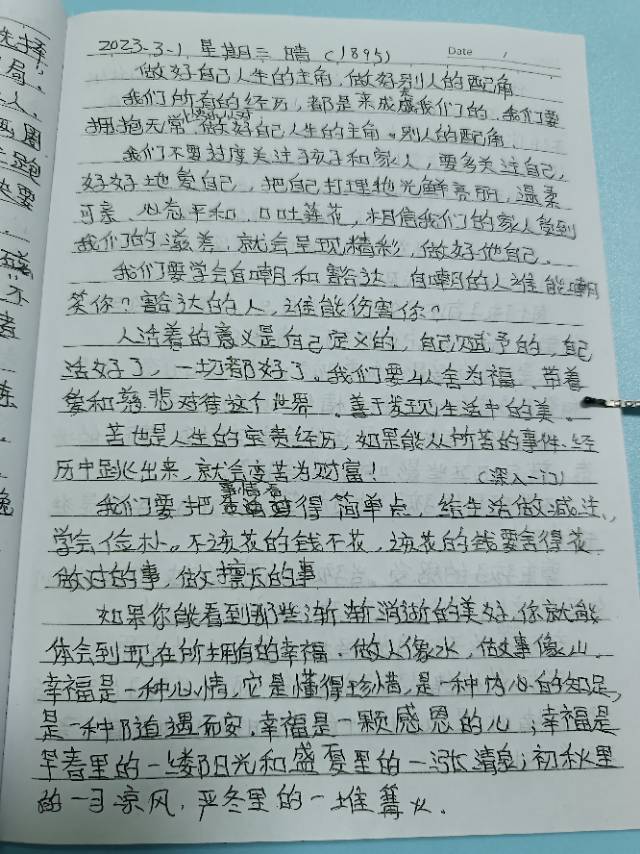 2023-3-1 星期三 晴 (1895) Date /
做好自己人生的主角,做好别人的配角
我们所有的经历,都是来成就我们的,我们要
拥抱无常,做好自己人生的主角,别人的配角.
我们不要过度关注孩子和家人,要多关注自己,
好好地爱自己,把自己打理地光鲜亮丽,温柔
可亲,心态平和,口吐莲花,相信我们的家人受到
我们的滋养,就会呈现精彩,做好他自己.
我们要学会自嘲和豁达,自嘲的人谁能嘲
笑你?豁达的人,谁能伤害你?
人活着的意义是自己定义的,自己赋予的,自己
活好了,一切都好了。我们要以舍为福,带着
爱和慈悲对待这个世界,善于发现生活中的美.
苦也是人生的宝贵经历,如果能从所苦的事件、经
历中跳出来,就会变苦为财富! (深入一门)
我们要把事情看得简单点,给生活做减法,
学会俭朴。不该花的钱不花,该花的钱要舍得花
做对的事,做擅长的事
如果你能看到那些渐渐消逝的美好,你就能
体会到现在所拥有的幸福.做人像水,做事像山.
幸福是一种心情,它是懂得珍惜,是一种内心的知足,
是一种随遇而安,幸福是一颗感恩的心;幸福是
早春里的一缕阳光和盛夏里的一泓清泉;初秋里
的一习凉风,严冬里的一堆篝火.
局.
人.
画圈
跑
要
不
者